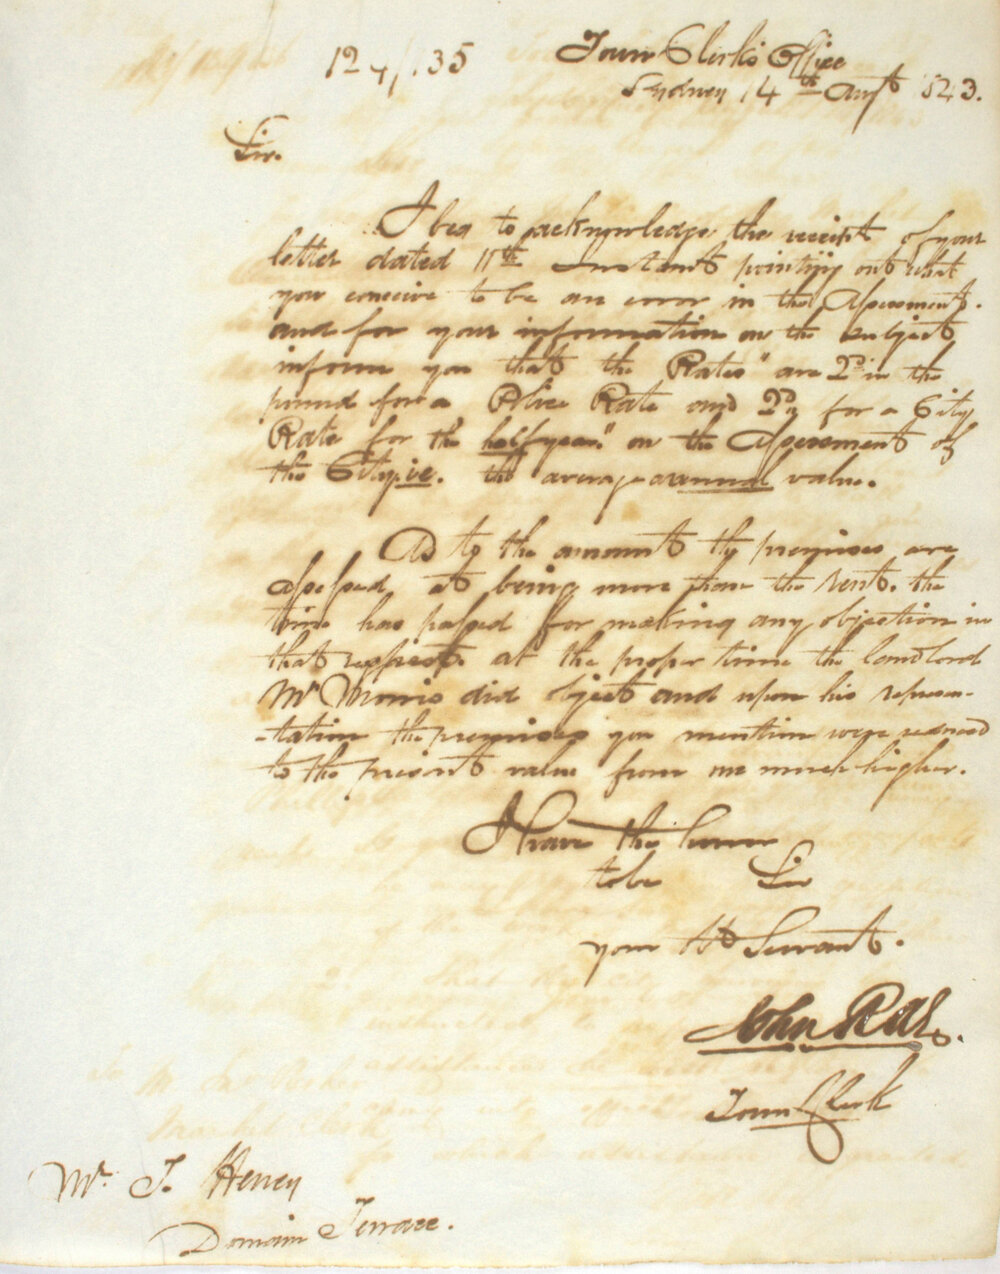 Town Clerk's Office
Sydney 14th Augt 1843.
Sir.
I beg to acknowledge the receipt of your
letter dated 11th Instant pointing out what
you conceive to be an error in the Assessment.
and for your information on the subject
inform you that the Rates" are 2d in the
pound for a Police Rate and 2d for a City
Rate for the half year." on the Assessment of
the City ie. the average annual value.
As to the amount the premises are
assessed at being more than the rent. the
time has passed for making any objection in
that respect. at the proper time the landlord
Mr Morris did object and upon his represen-
-tation the premises you mention were reduced
to the present value from one much higher.
I have the honor
to be Sir
your Ht Servant.
John Rae.
Town Clerk
Mr. J. Henry
Domain Terrace.